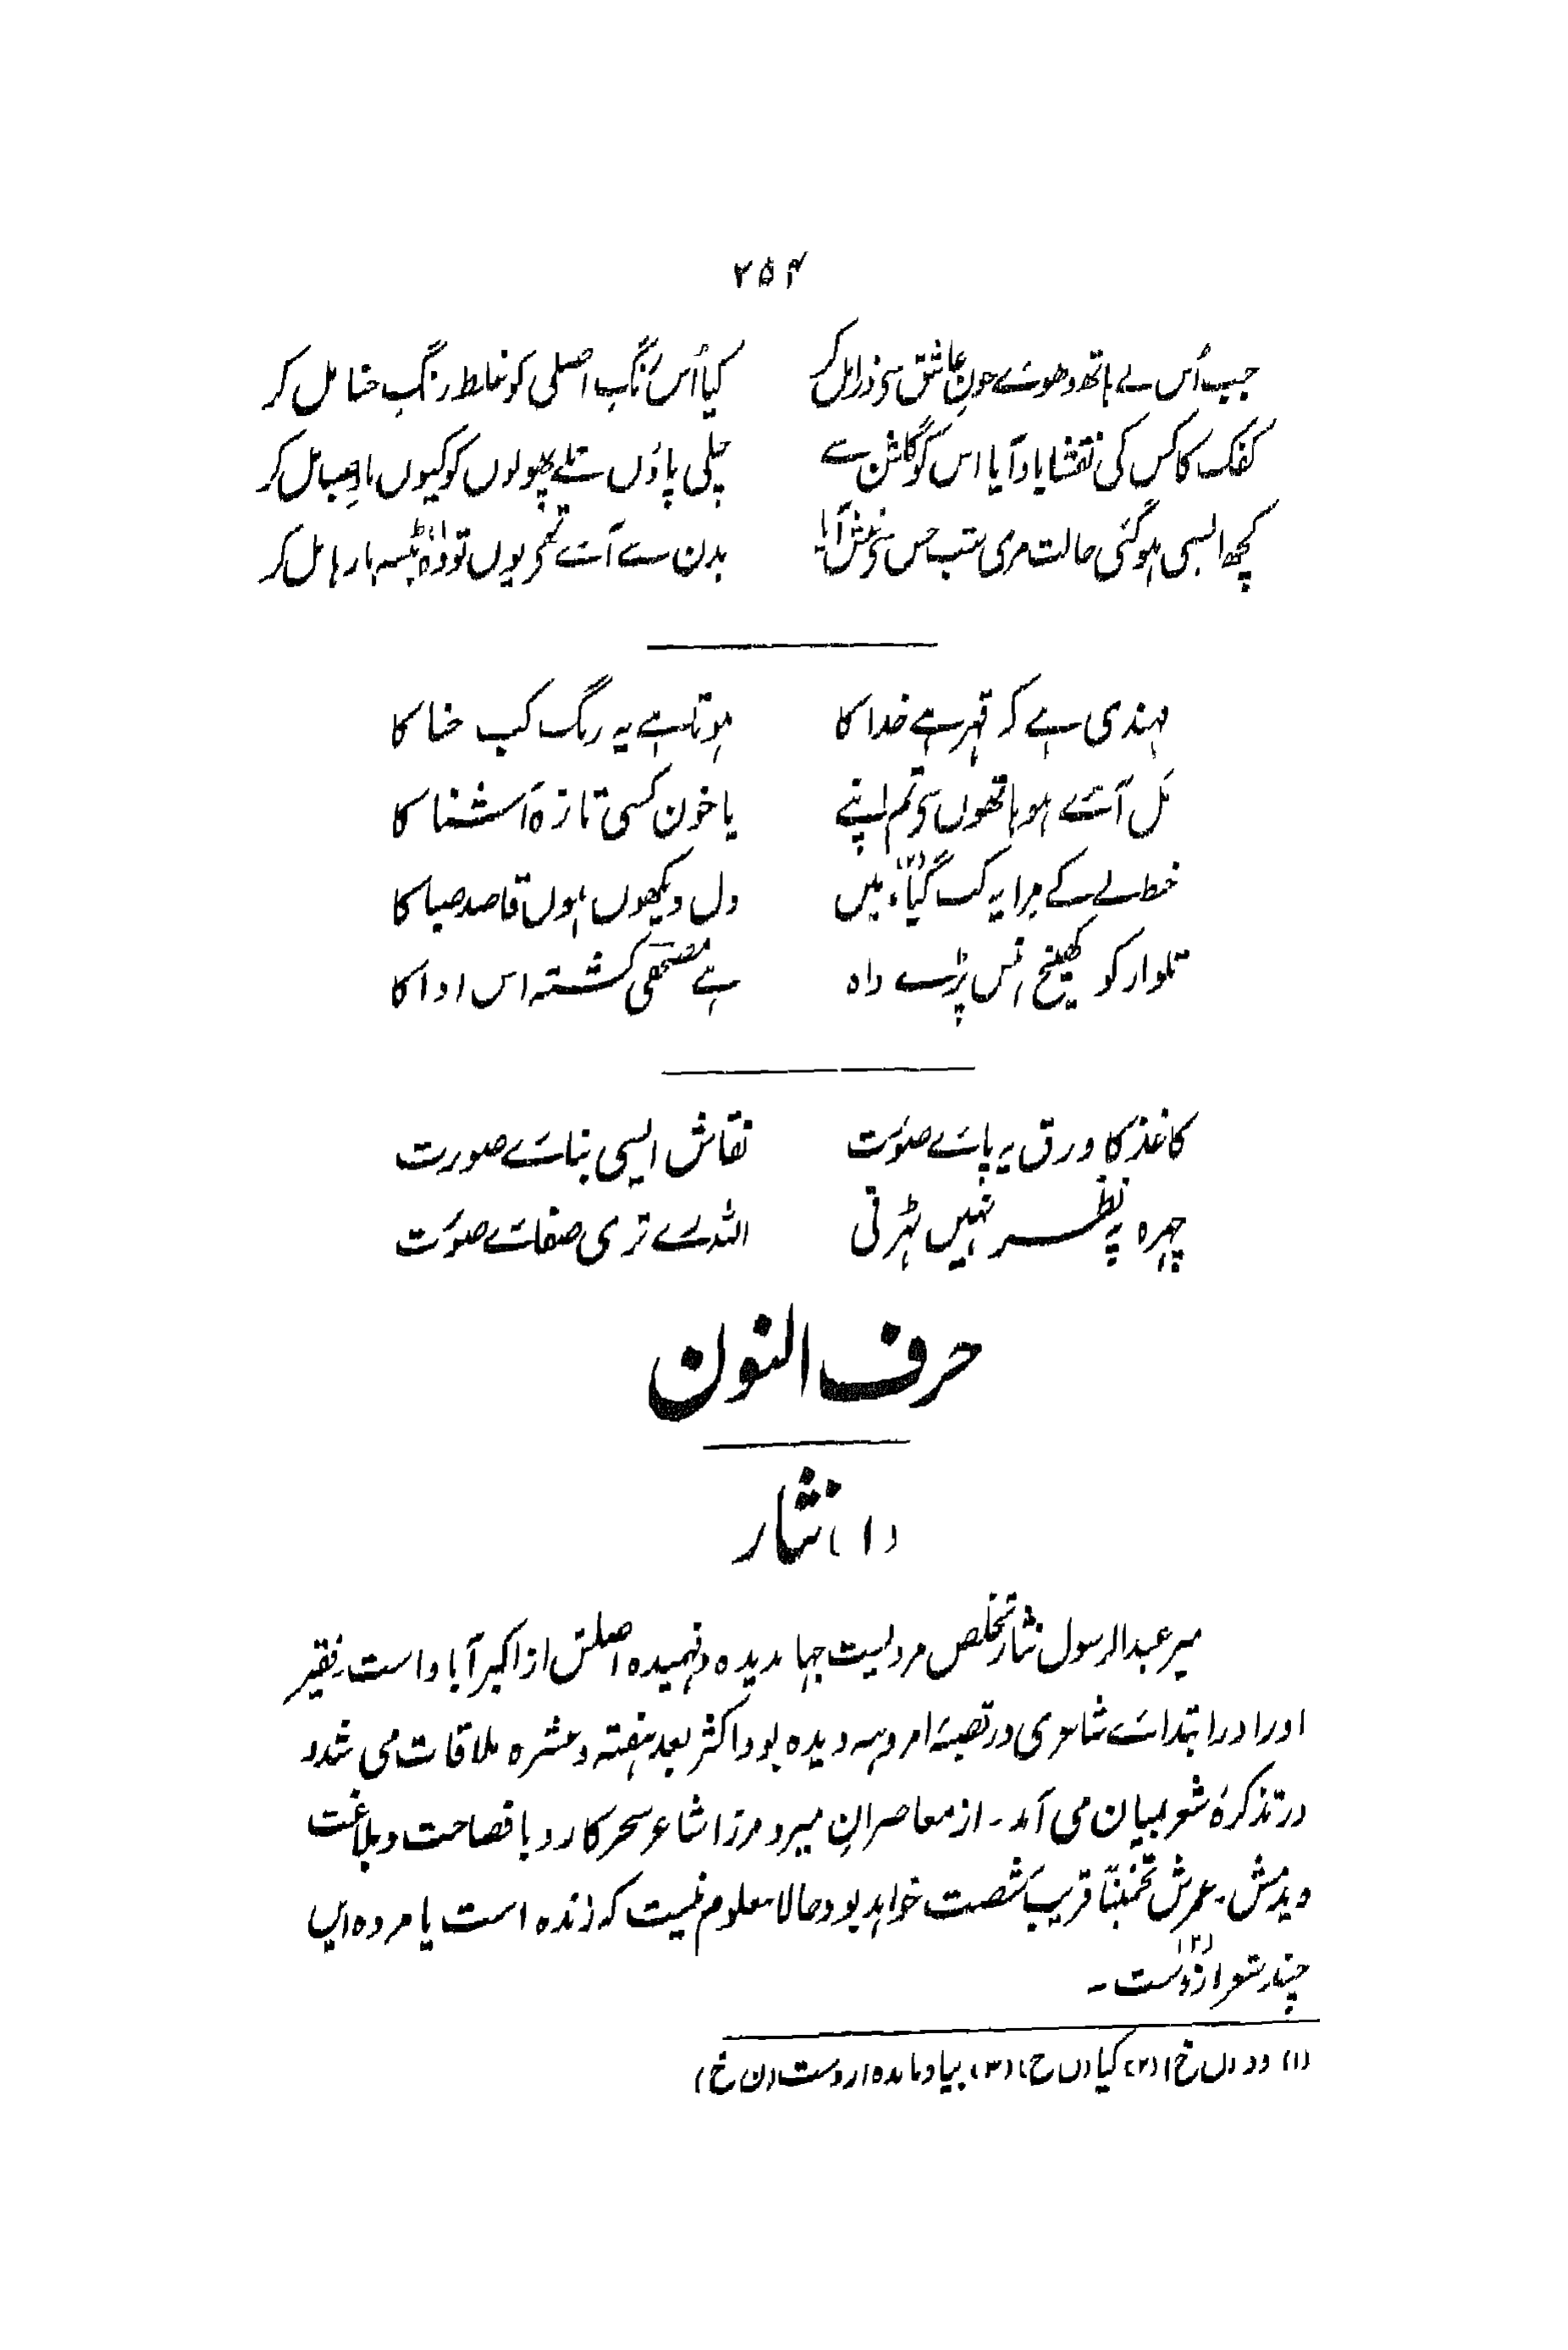 ۲۵۴
جب اُس نے ہاتھ دھوئے خونِ عاشق سے ذرا مل کر کیا اُس رنگِ اصلی کو غلط رنگِ حنا مل کر
کفک کا کس کی نقشا یاد آیا اس کو گلشن سے چلی پاؤں تلے پھولوں کو کیوں بادِ صبا مل کر
کچھ ایسی ہو گئی حالت مری شب جس سے غش آیا بدن سے آئے تم یوں تو وہ ہمارہا مل کر
مہندی ہے کہ قہر ہے خدا کا ہوتا ہے یہ رنگ کب حنا کا
مَل آئے ہو ہاتھوں سے تم اپنے یا خون کسی تازہ آشنا کا
خط لے کے مرا یہ کب گیا(۲) میں دل دیکھوں ہوں قاصد صبا کا
تلوار کو کھینچ ہنس پڑے واہ ہے مصحفی کشتہ اس ادا کا
کاغذ کا ورق یہ پائے صورت نقاش ایسی بنائے صورت
چہرہ پہ نظر نہیں ٹہرتی اللہ رے تری صفائے صورت
حرف النون
(۱) نثار
میر عبدالرسول نثار تخلص مردیست جہاندیدہ و فہمیدہ اصلش از اکبرآباد است۔ فقیر
اورا در ابتدائے شاعری در قصبۂ امروہہ دیدہ بود اکثر بعد ہفتہ و عشرہ ملاقات می شد و
در تذکرۂ شعر بمیان می آمد۔ از معاصرانِ میر و مرزا شاعر سحرکار و بافصاحت و بلاغت
دیدمش۔ عمرش تخمیناً قریبِ شصت خواہد بود حالا معلوم نیست کہ زندہ است یا مردہ ایں
چند شعر ازوست(۳)۔
(۱) وو (ں خ) (۲) کیا (ں خ) (۳) بیاد ماندہ ازوست (ن خ)